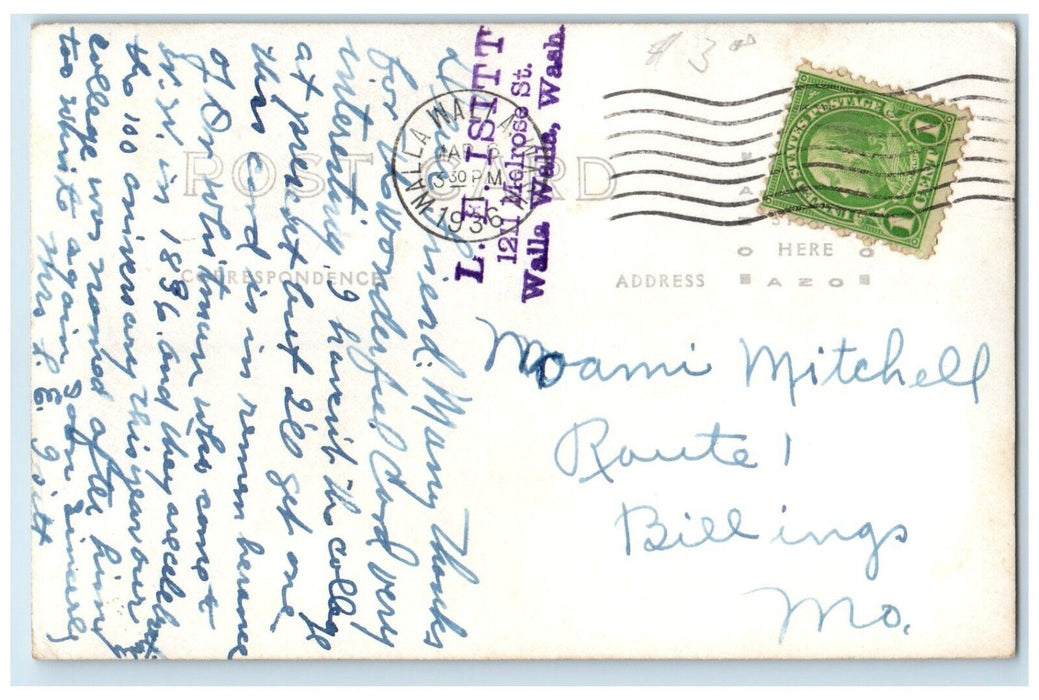 Dear Friend: Many thanks
for the wonderful card very
interesting. I havn't the college
at present but I'll get one.
this card is in remembrance
of Dr. Whitman who came
W.W. in 1836. and they are celebrating
the 100 aniversary this year our
college was named after him,
to write again soon Sincerely
Mrs L. E. Isitt
L. E. ISITT
1211 Melrose St.
Walla Walla, Wash.
$ 3 00
POST CARD
WALLA WALLA
MAR
3 30 PM
1936
WASH.
UNITED STATES POSTAGE
1 CENT 1
CORRESPONDENCE
ADDRESS
HERE
AZO
Noami Mitchell
Route 1
Billings
Mo.